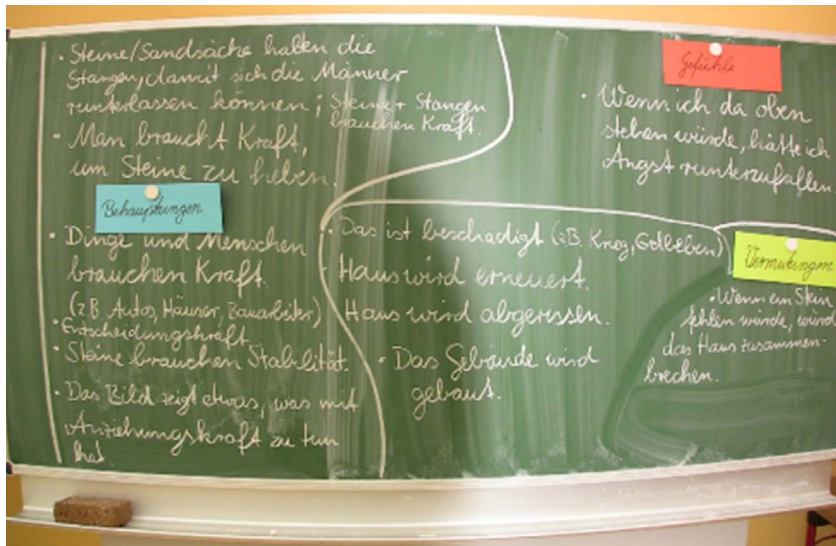 • Steine/Sandsäcke halten die
Stangen, damit sich die Männer
runterlassen können; Steine + Stangen
brauchen Kraft.
• Man braucht Kraft,
um Steine zu heben.
Behauptungen
• Dinge und Menschen
brauchen Kraft.
(z.B. Autos, Häuser, Bauarbeiter)
• Entscheidungskraft
• Steine brauchen Stabilität.
• Das Bild zeigt etwas, was mit
Anziehungskraft zu tun
hat.
• Das ist beschädigt (z.B. Krieg, Erdbeben)
• Haus wird erneuert.
Haus wird abgerissen.
• Das Gebäude wird
gebaut.
Gefühle
• Wenn ich da oben
stehen würde, hätte ich
Angst runterzufallen
Vermutungen
• Wenn ein Stein
fehlen würde, würde
das Haus zusammen-
brechen.